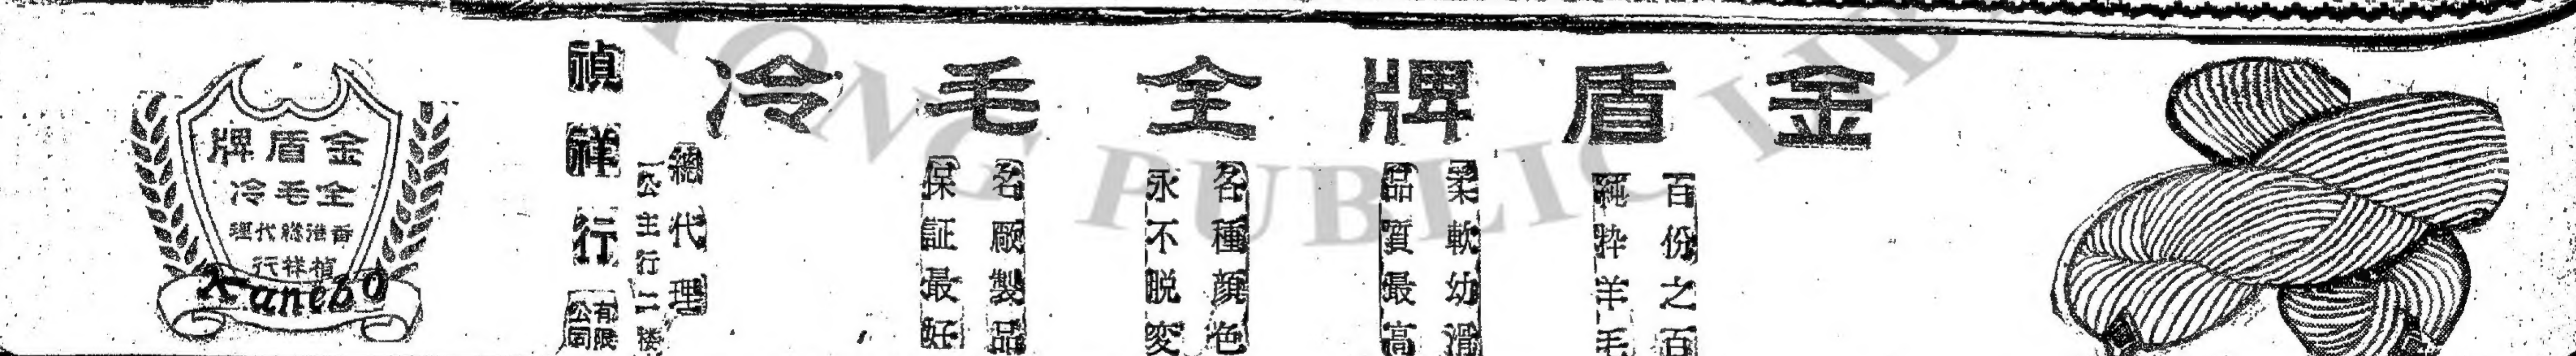 金盾牌全毛冷
百份之百
純粹羊毛
柔軟幼滑
品質最高
各種顏色
永不脱変
名厰製品
保証最好
總代理
公主行二楼
禎祥行
有限公司
金盾牌
全毛冷
香港總代理
禎祥行
Kanebo
PUBLIC